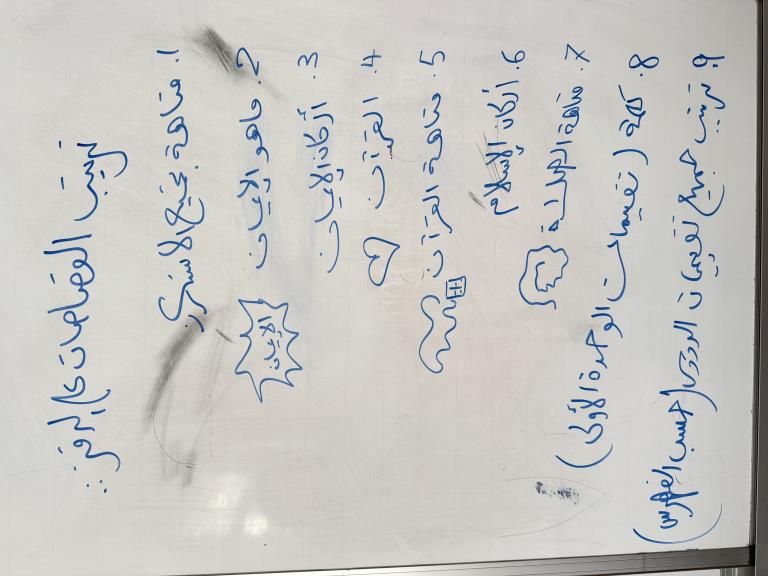 ترتيب القصاصات على الدفتر:
1. متاهة بجميع الأشكر
2. ماهو الإيمان
الإيمان
3. أركان الإيمان
4. القرآن
5. متاهة القرآن
6. أركان الإسلام
7. متاهة الصلاة
8. كلمة (تقييمات الوحدة الأولى)
9. ترتيب جميع تقييمات الدروس (حسب الفهرس)